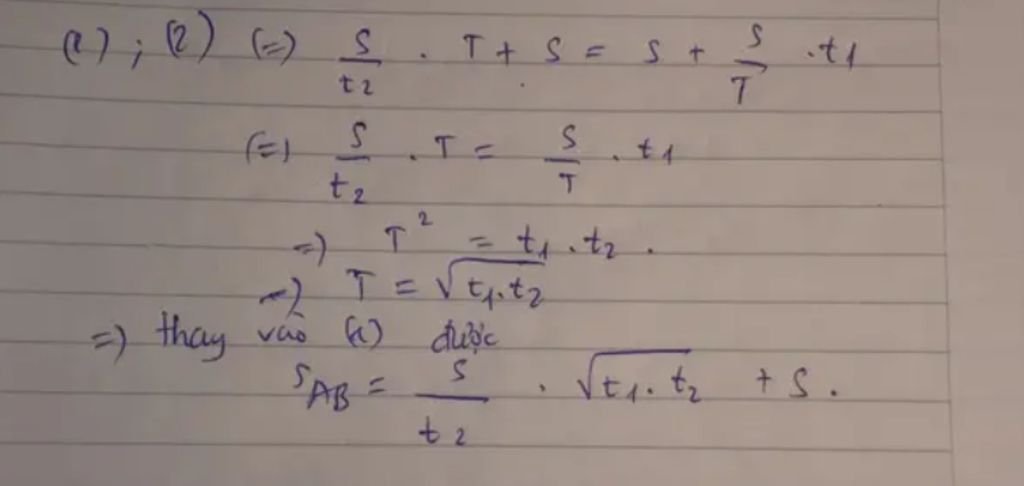 (1) ; (2) (=) S/t2 . T + S = S + S/T . t1
(=) S/t2 . T = S/T . t1
=) T² = t1 . t2 .
=) T = √t1.t2
=) thay vào (1) được
SAB = S/t2 . √t1. t2 + S .